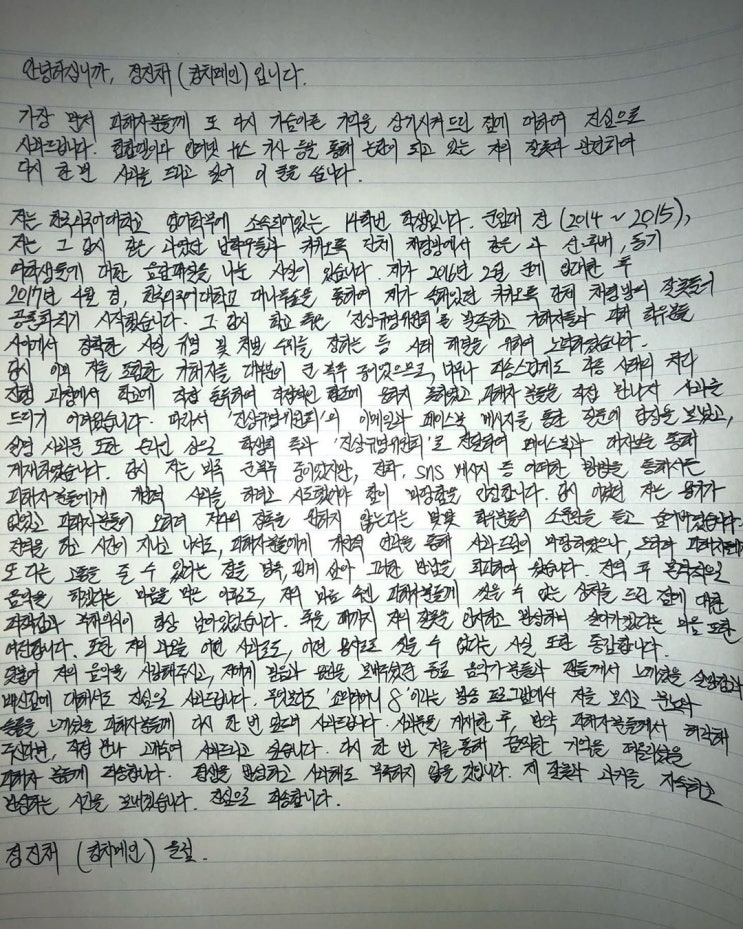 안녕하십니까, 정진채 (킴치메인) 입니다.
가장 먼저 피해자분들께 또 다시 가슴아픈 기억을 상기시켜 드린 점에 대하여 진심으로
사과드립니다. 힙합엘이와 인터넷 뉴스 기사 등을 통해 논란이 되고 있는 저의 잘못과 관련하여
다시 한 번 사과를 드리고 싶어 이 글을 씁니다.
저는 한국외국어대학교 영어학부에 소속되어있는 14학번 학생입니다. 군입대 전 (2014 ~ 2015),
저는 그 당시 같은 과였던 남학우들과 카카오톡 단체 채팅방에서 같은 과 선·후배, 동기
여학생들에 대한 음담패설을 나눈 사실이 있습니다. 제가 2016년 2월 군에 입대한 후
2017년 4월 경, 한국외국어대학교 대나무숲을 통하여 제가 속해있던 카카오톡 단체 채팅방의 잘못들이
공론화되기 시작했습니다. 그 당시 학교 측은 '진상규명위원회'를 발족하고 가해자들과 피해 학우분들
사이에서 정확한 사실 규명 및 처벌 수위를 정하는 등 사태 해결을 위하여 노력하였습니다.
당시 이미 저를 포함한 가해자들 대부분이 군 복무 중이었으므로, 너무나 죄송스럽게도 각종 사태의 처리
진행 과정에서 학교에 직접 출두하여 직접적인 협조에 응하지 못하였고, 피해자 분들을 직접 만나서 사과를
드리기 어려웠습니다. 따라서 '진상규명위원회'의 이메일과 페이스북 메시지를 통한 질문에 답장을 보냈고,
실명 사과문 또한 온라인 상으로 학생회 측과 '진상규명위원회'로 전달하여 페이스북과 대자보를 통해
게재하였습니다. 당시 저는 비록 군복무 중이었지만, 전화, SNS 메시지 등 어떠한 방법을 통해서든
피해자분들에게 개인적 사과를 하려고 시도했어야 함이 마땅함을 인정합니다. 당시 어렸던 저는 용기가
없었고 피해자분들이 오히려 저와의 접촉을 원하지 않는다는 몇몇 학우분들의 소문만을 듣고 숨기바빴습니다.
전역을 하고 시간이 지나고 나서도, 피해자분들에게 개인적 연락을 통해 사과드림이 마땅하였으나, 오히려 피해자분들께
또 다른 고통을 줄 수 있다는 점을 방패, 핑계 삼아 과한 방법을 회피하여 왔습니다. 전역 후 본격적으로
음악을 하겠다는 마음을 먹은 이후로도, 저의 마음 속엔 피해자분들께 씻을 수 없는 상처를 드린 점에 대한
죄책감과 죄의식이 항상 남아있었습니다. 죽을 때까지 저의 잘못을 인지하고 반성하며 살아가겠다는 마음 또한
여전합니다. 또한 저의 과오를 어떤 사과로도, 어떤 용서로도 씻을 수 없다는 사실 또한 통감합니다.
덧붙여 저의 음악을 사랑해주시고, 저에게 믿음과 응원을 보내주셨던 동료 음악가분들과 팬들께서 느끼셨을 실망감과
배신감에 대해서도 진심으로 사과드립니다. 무엇보다도 '쇼미더머니 8'이라는 방송 프로그램에서 저를 보시고 분노와
슬픔을 느끼셨을 피해자분들께 다시 한 번 엎드려 사과드립니다. 사과문을 게시한 후, 만약 피해자분들께서 허락해
주신다면, 직접 만나 고개숙여 사과드리고 싶습니다. 다시 한 번 저를 통해 끔찍한 기억을 떠올리셨을
피해자 분들께 죄송합니다. 평생을 반성하고 사과해도 부족하지 않을 것입니다. 제 잘못과 과거를 자숙하고
반성하는 시간을 보내겠습니다. 진심으로 죄송합니다.
정진채 (킴치메인) 올림.